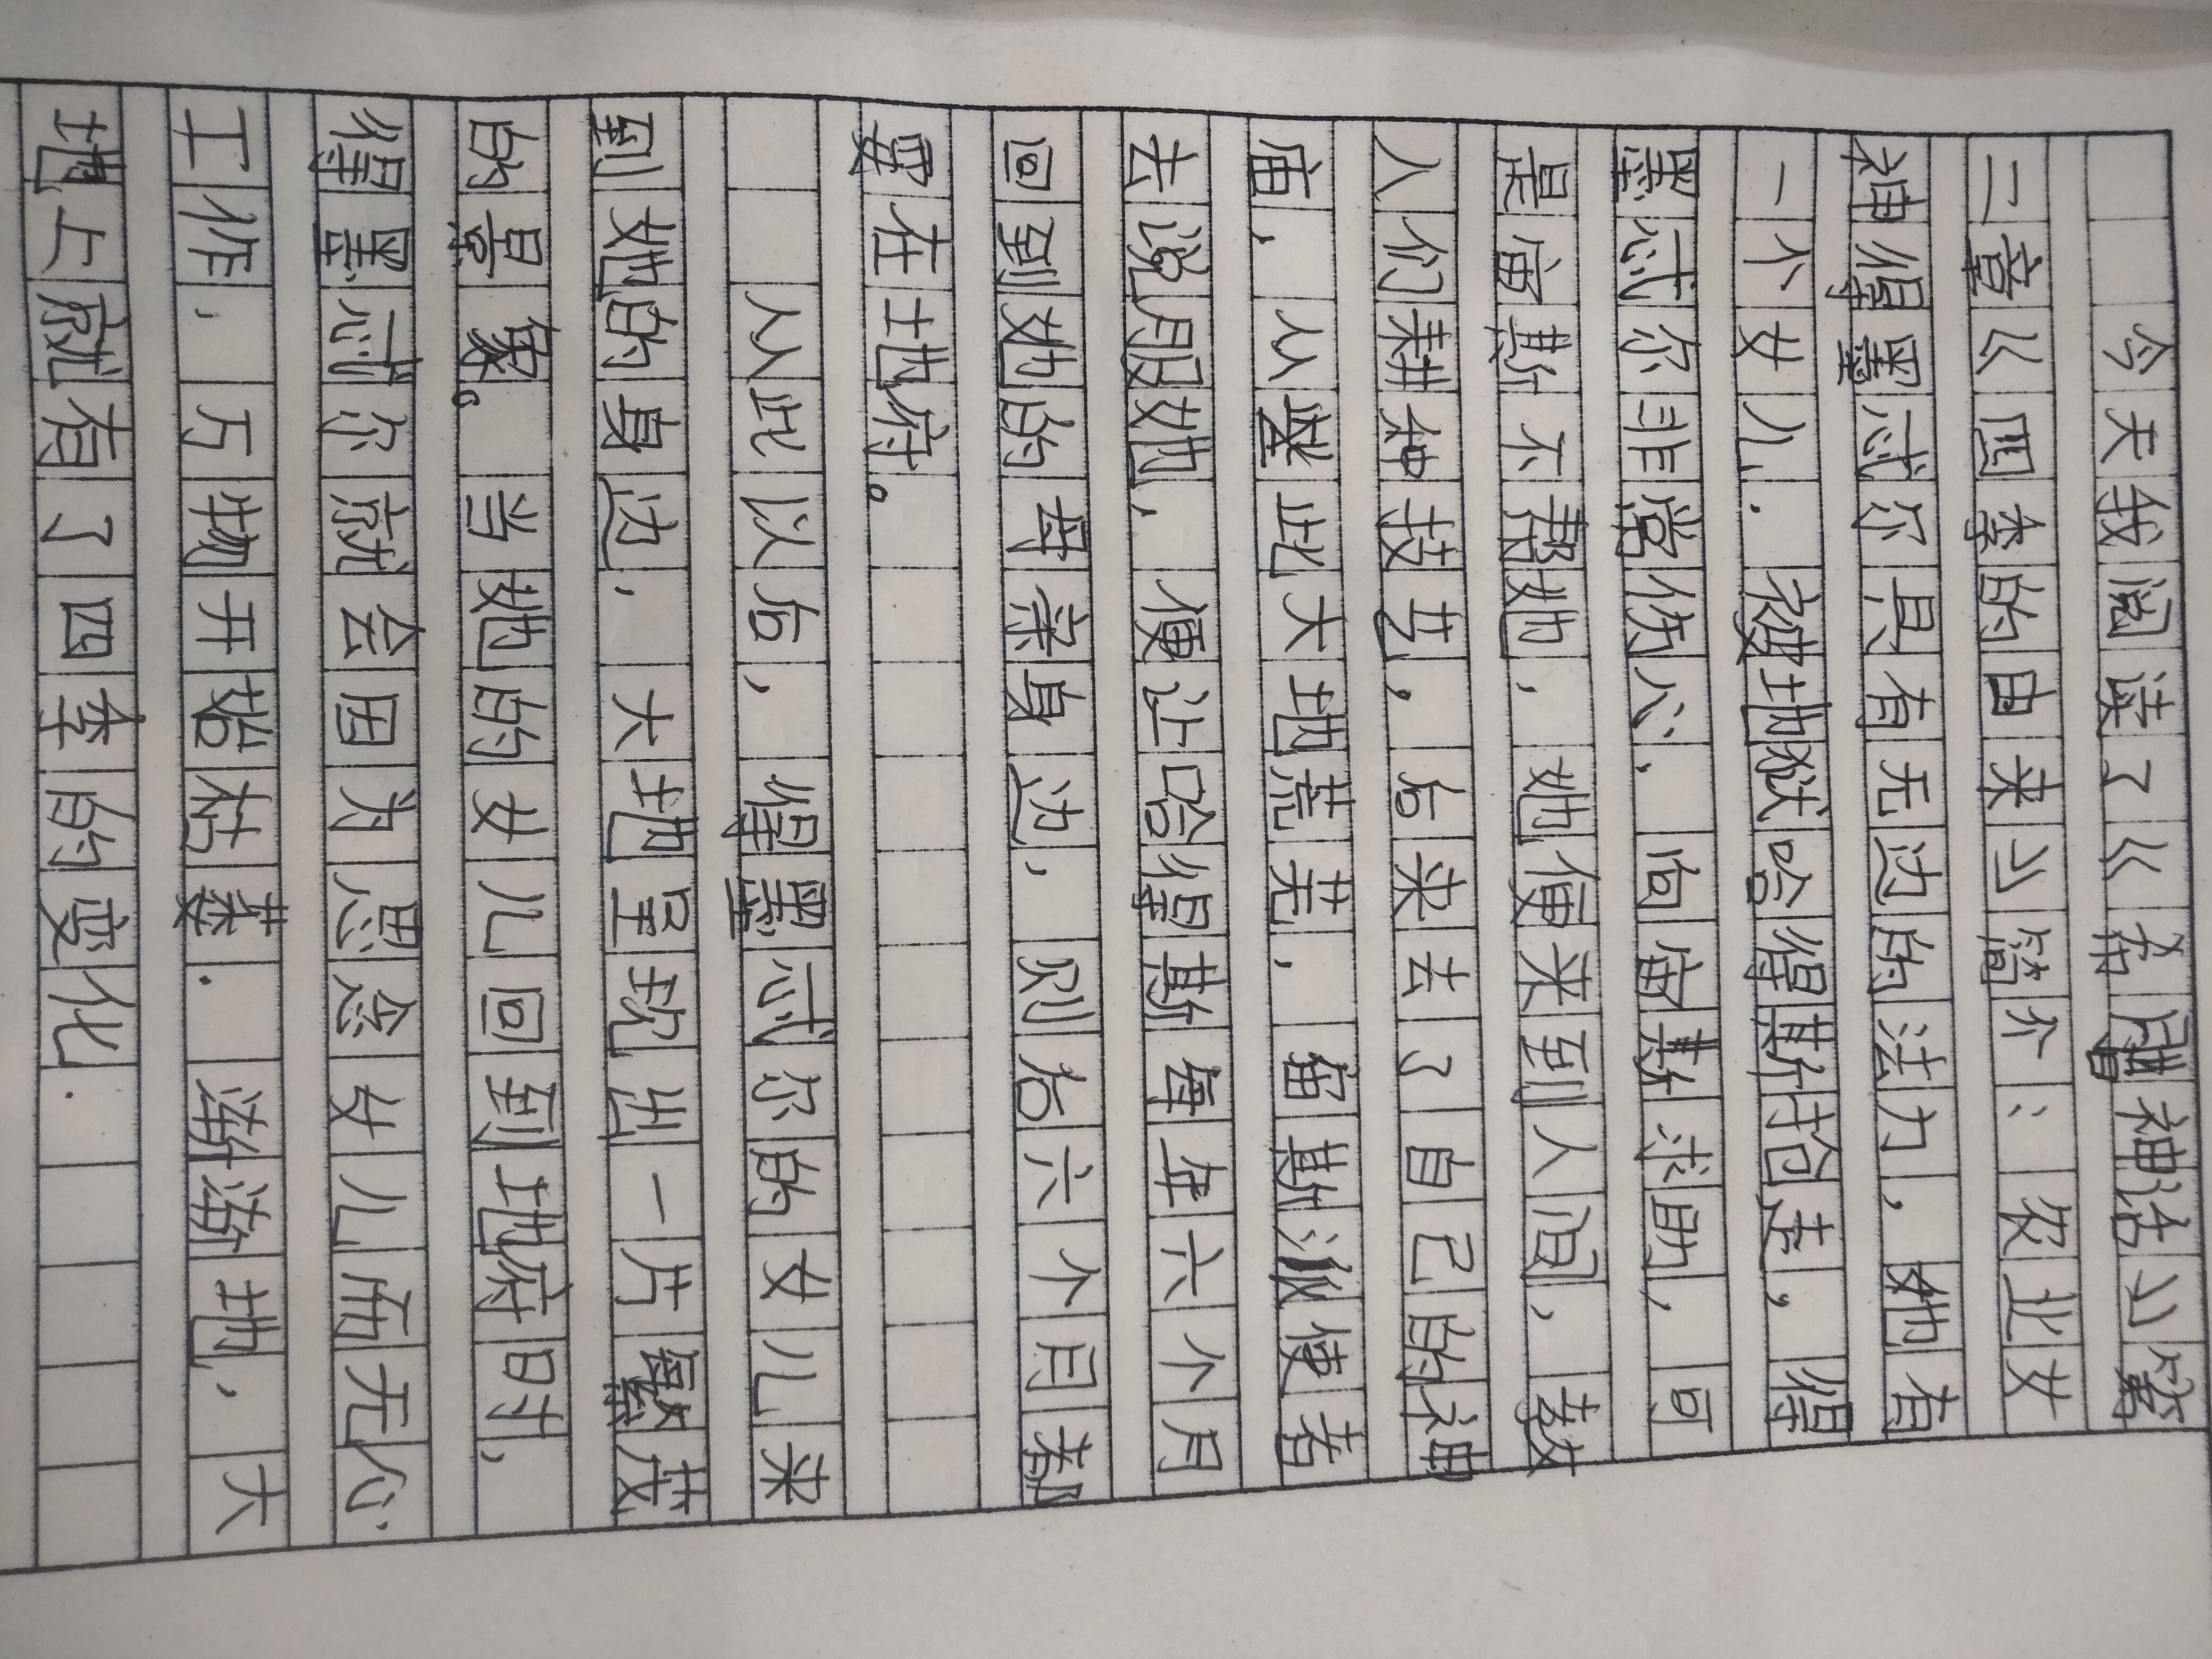 今天我阅读了《希腊神话》第
二章《四季的由来》简介：农业女
神得墨忒尔具有无边的法力，她有
一个女儿．被地狱哈得斯抢走，得
墨忒尔非常伤心，向宙斯求助，可
是宙斯不帮她，她便来到人间，教
人们耕种技艺，后来去了自己的神
庙，从此大地荒芜，宙斯派使者
去说服她，便让哈得斯每年六个月
回到她的母亲身边，则后六个月都
要在地府。
从此以后，得墨忒尔的女儿来
到她的身边，大地呈现出一片繁茂
的景象。当她的女儿回到地府时，
得墨忒尔就会因为思念女儿而无心
工作，万物开始枯萎．渐渐地，大
地上就有了四季的变化．